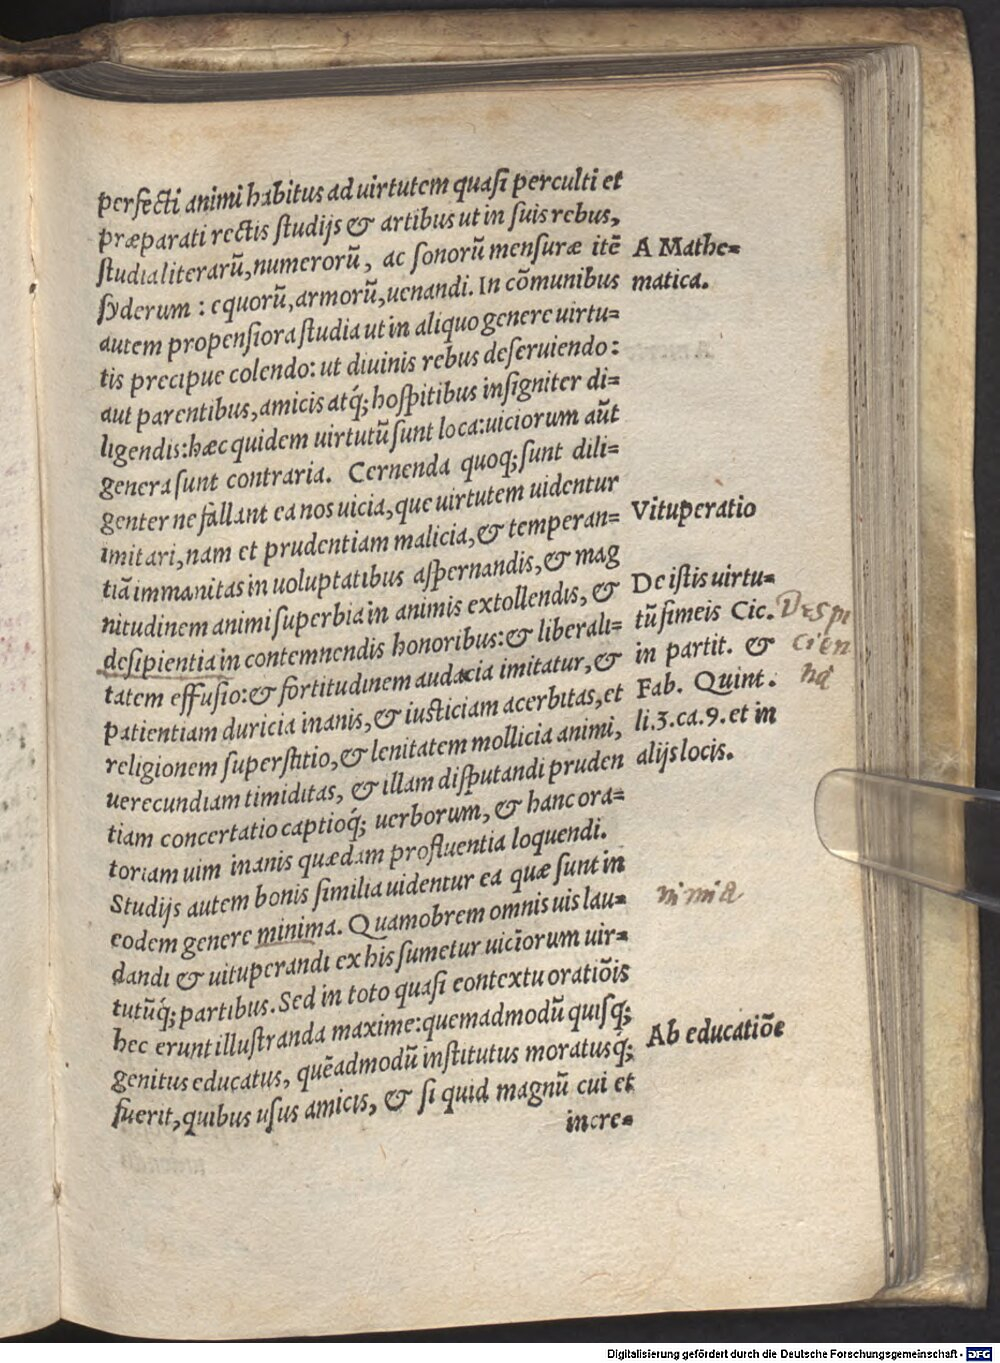 perfecti animi habitus ad uirtutem quasi perculti et
præparati rectis studijs & artibus ut in suis rebus,
studia literarũ, numerorũ, ac sonorũ mensuræ itẽ
syderum : equorũ, armorũ, uenandi. In cõmunibus
autem propensiora studia ut in aliquo genere uirtu=
tis precipue colendo: ut diuinis rebus deseruiendo:
aut parentibus, amicis atq́; hospitibus insigniter di=
ligendis: hæc quidem uirtutũ sunt loca: uiciorum aũt
genera sunt contraria. Cernenda quoq; sunt dili=
genter ne fallant ea nos uicia, que uirtutem uidentur
imitari, nam et prudentiam malicia, & temperan=
tiã immanitas in uoluptatibus aspernandis, & mag
nitudinem animi superbia in animis extollendis, &
desipientia in contemnendis honoribus: & liberali=
tatem effusio: & fortitudinem audacia imitatur, &
patientiam duricia inanis, & iusticiam acerbitas, et
religionem superstitio, & lenitatem mollicia animi,
uerecundiam timiditas, & illam disputandi pruden
tiam concertatio captioq́; uerborum, & hanc ora=
toriam uim inanis quædam profluentia loquendi.
Studijs autem bonis similia uidentur ea quæ sunt in
eodem genere minima. Quamobrem omnis uis lau=
dandi & uituperandi ex his sumetur uiciorum uir=
tutũq́; partibus. Sed in toto quasi contextu oratiõis
hec erunt illustranda maxime: quemadmodũ quisq́;
genitus educatus, quẽadmodũ institutus moratusq́;
fuerit, quibus usus amicis, & si quid magnũ cui et
incre=
A Mathe=
matica.
Vituperatio
De istis uirtu=
tũ simeis Cic.
in partit. &
Fab. Quint.
li.3.ca.9. et in
alijs locis.
Despi
cien
nimia
Ab educatiõe
Digitalisierung gefördert durch die Deutsche Forschungsgemeinschaft - DFG